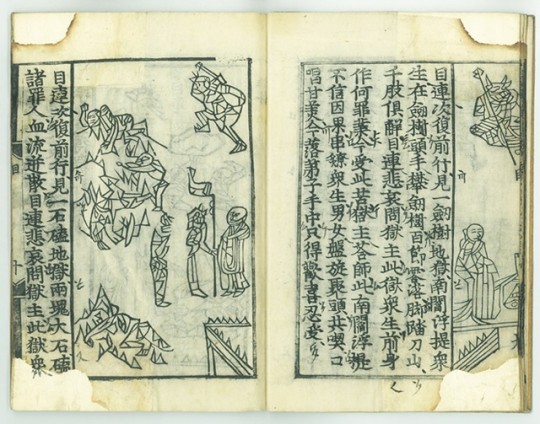 目連次復前行見一劍樹地獄南閻浮提衆
生在劍樹頭手攀劍樹百節零落脚踏刀山
千股俱解目連悲哀問獄主此獄衆生前身
作何罪業今受此苦獄主答師此南閻浮提
不信因果串鐐衆生男女盤旋聚頭共喫口
唱甘美今落弟子手中只得歡喜忍受
目連次復前行見一石磕地獄兩塊大石磕
諸罪人血流迸散目連悲哀問獄主此獄衆
目 十